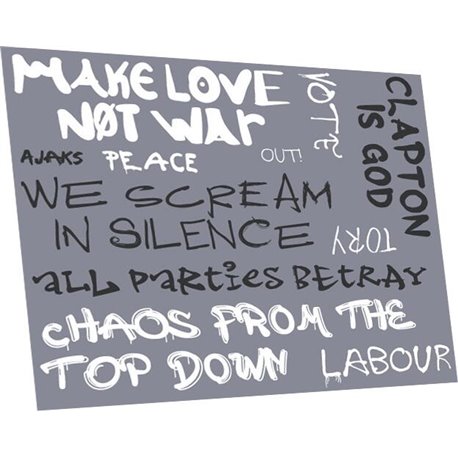 MAKE LOVE
NØT WAr
VOTE
CLAPTON
IS GOD
AJAKS
PEACE
OUT!
WE SCREAM
IN SILENCE
TORY
aLL Parties BETRAY
CHAOS FROM THE
TOP DOWN
LABOUR